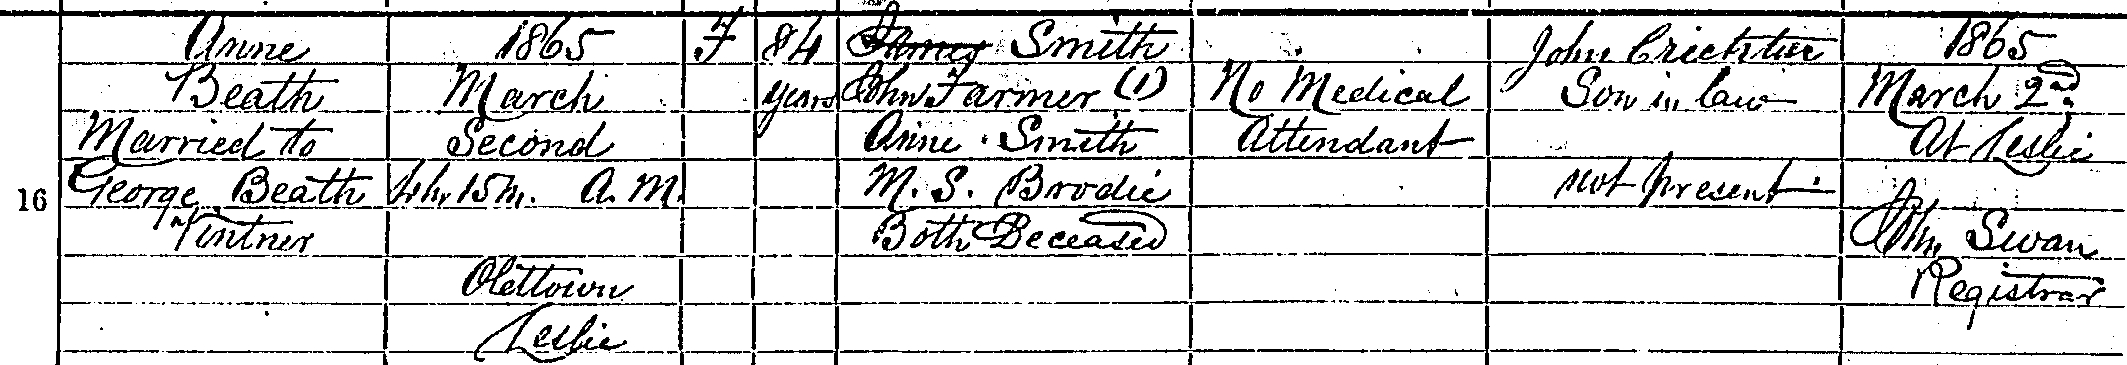 16
Anne
Beath
Married to
George Beath
Vintner
1865
March
Second
1h. 15m. A. M.
Olettown
Leslie
F
84
years
James Smith
John Farmer (1)
Anne Smith
M. S. Brodie
Both Deceased
No Medical
Attendant
John Crichton
Son in law
not present
1865
March 2nd
At Leslie
John Swan
Registrar